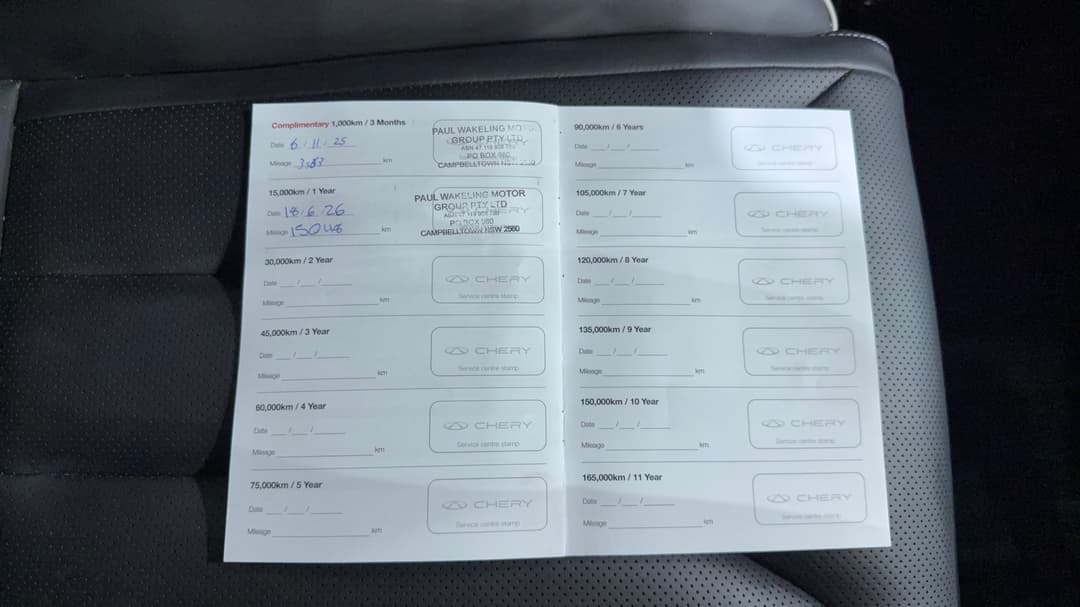 Complimentary 1,000km / 3 Months
Date 6 / 11 / 25
Mileage km
PAUL WAKELING
GROUP PTY LTD
PO BOX 980
CAMPBELLTOWN
15,000km / 1 Year
Date 18 / 6 / 26
Mileage 15048 km
PAUL WAKELING MOTOR
GROUP PTY LTD
PO BOX 980
CAMPBELLTOWN NSW 2560
30,000km / 2 Year
Date __/__/____
Mileage km
CHERY
Service centre stamp
45,000km / 3 Year
Date __/__/____
Mileage km
CHERY
Service centre stamp
60,000km / 4 Year
Date __/__/____
Mileage km
CHERY
Service centre stamp
75,000km / 5 Year
Date __/__/____
Mileage km
CHERY
Service centre stamp
90,000km / 6 Years
Date __/__/____
Mileage km
CHERY
Service centre stamp
105,000km / 7 Year
Date __/__/____
Mileage km
CHERY
Service centre stamp
120,000km / 8 Year
Date __/__/____
Mileage km
CHERY
Service centre stamp
135,000km / 9 Year
Date __/__/____
Mileage km
CHERY
Service centre stamp
150,000km / 10 Year
Date __/__/____
Mileage km
CHERY
Service centre stamp
165,000km / 11 Year
Date __/__/____
Mileage km
CHERY
Service centre stamp